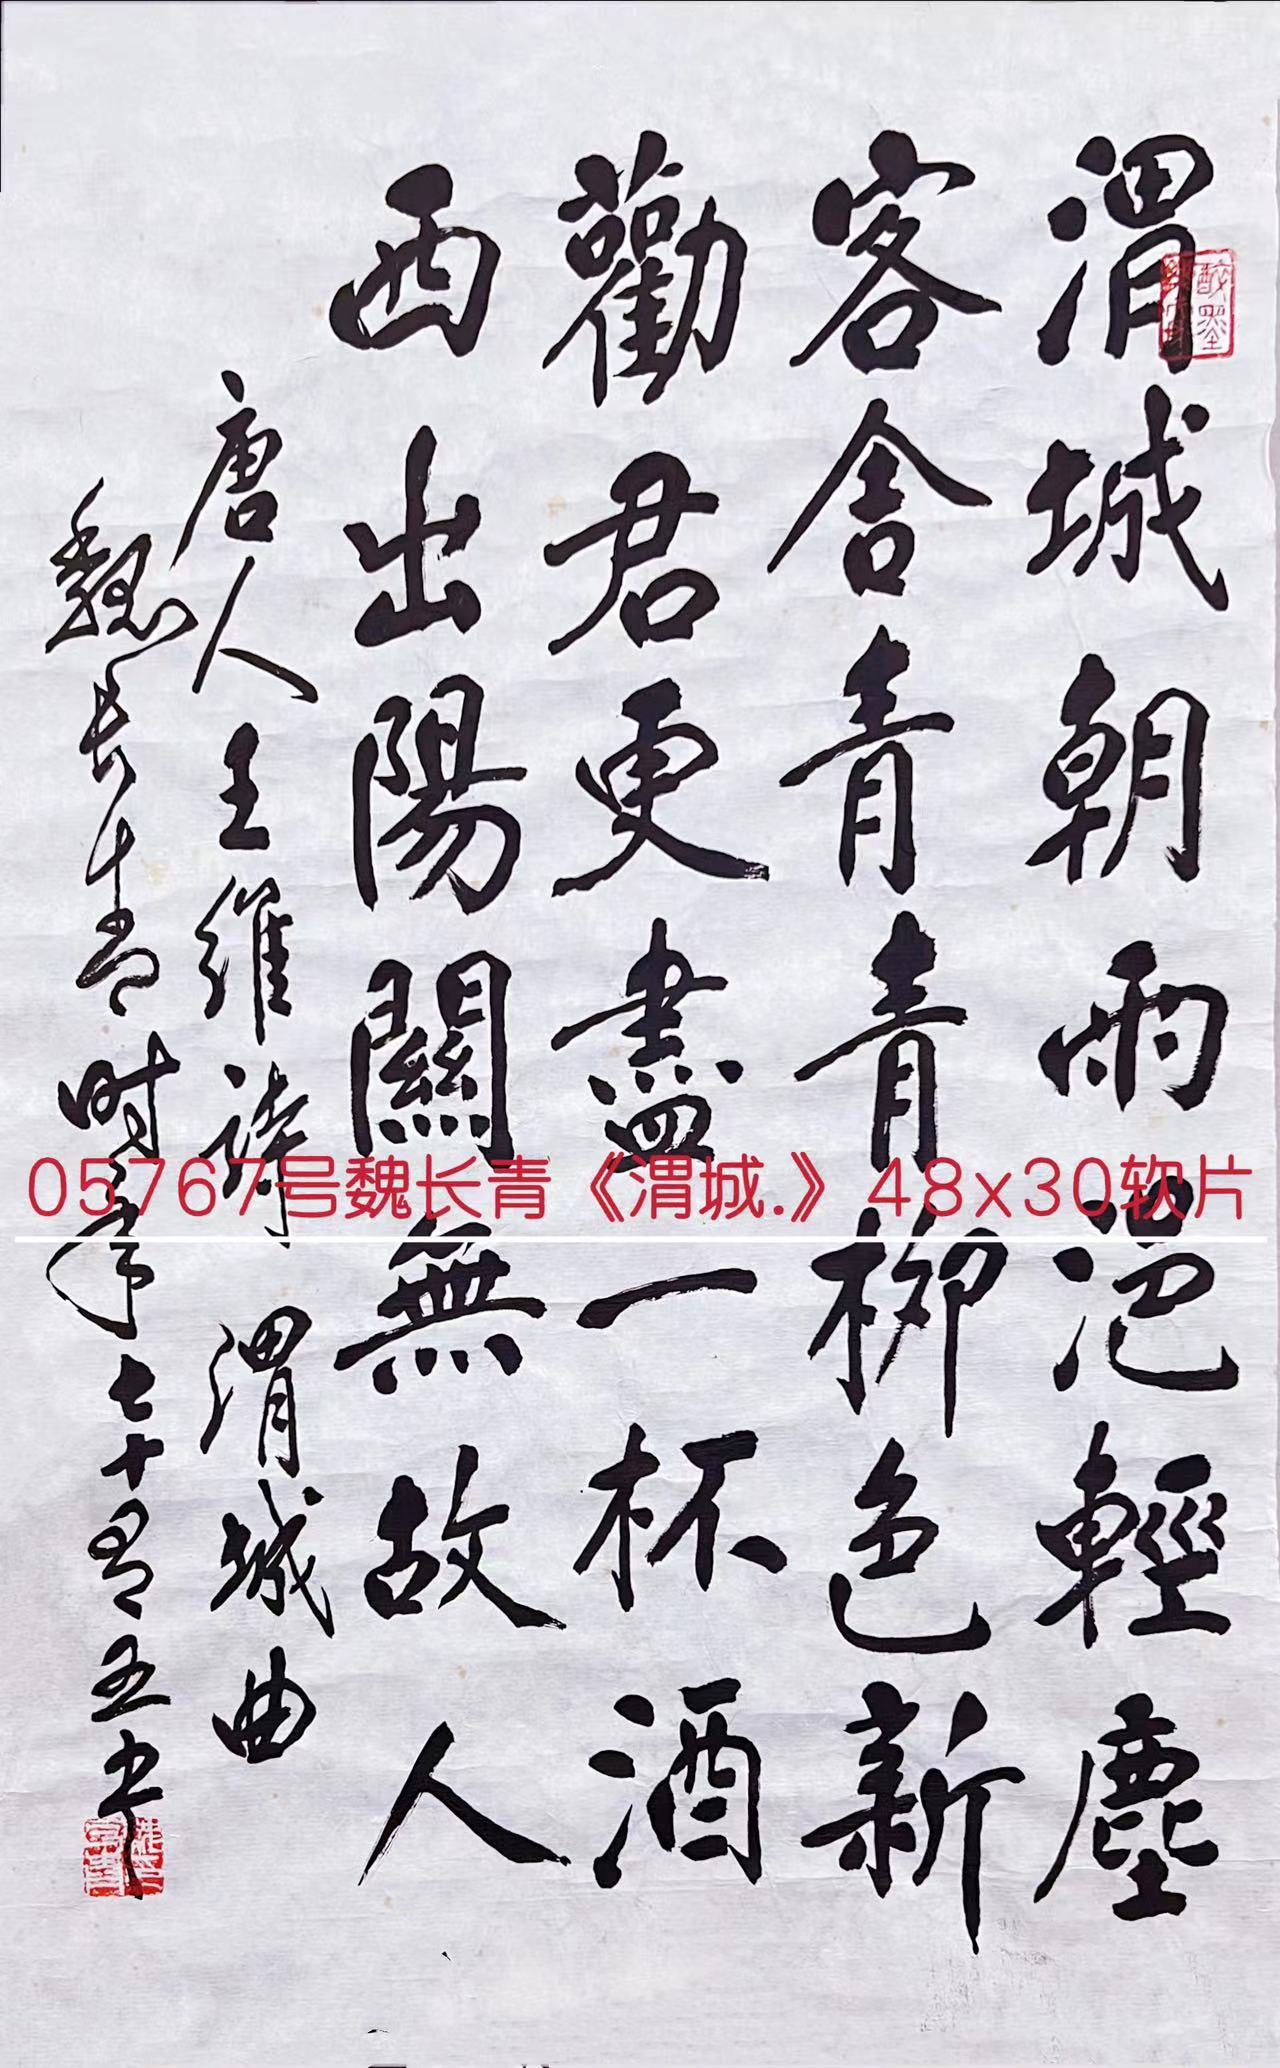 渭城朝雨浥輕塵
客舍青青柳色新
勸君更盡一杯酒
西出陽關無故人
唐人王維詩 渭城曲
魏長青时年七十有五书
醉墨
05767号魏长青《渭城.》48x30软片